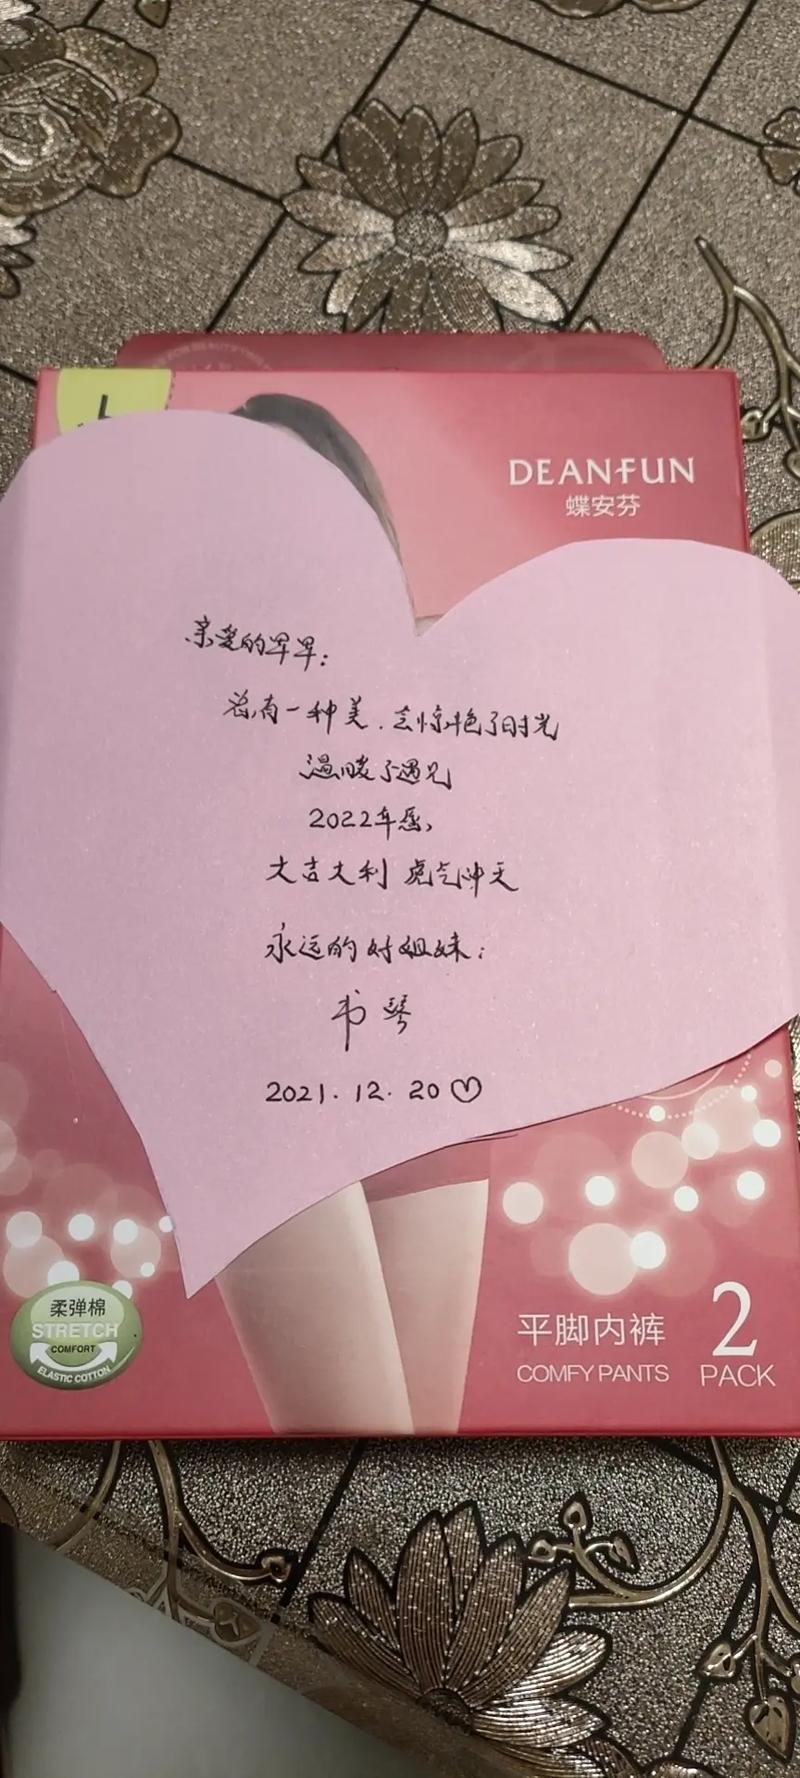 L
DEANFUN
蝶安芬
亲爱的早早：
总有一种美.会惊艳了时光
温暖了遇见
2022年愿，
大吉大利 虎气冲天
永远的好姐妹：
书琴
2021.12.20♡
柔弹棉
STRETCH
COMFORT
ELASTIC COTTON
平脚内裤
COMFY PANTS
2
PACK